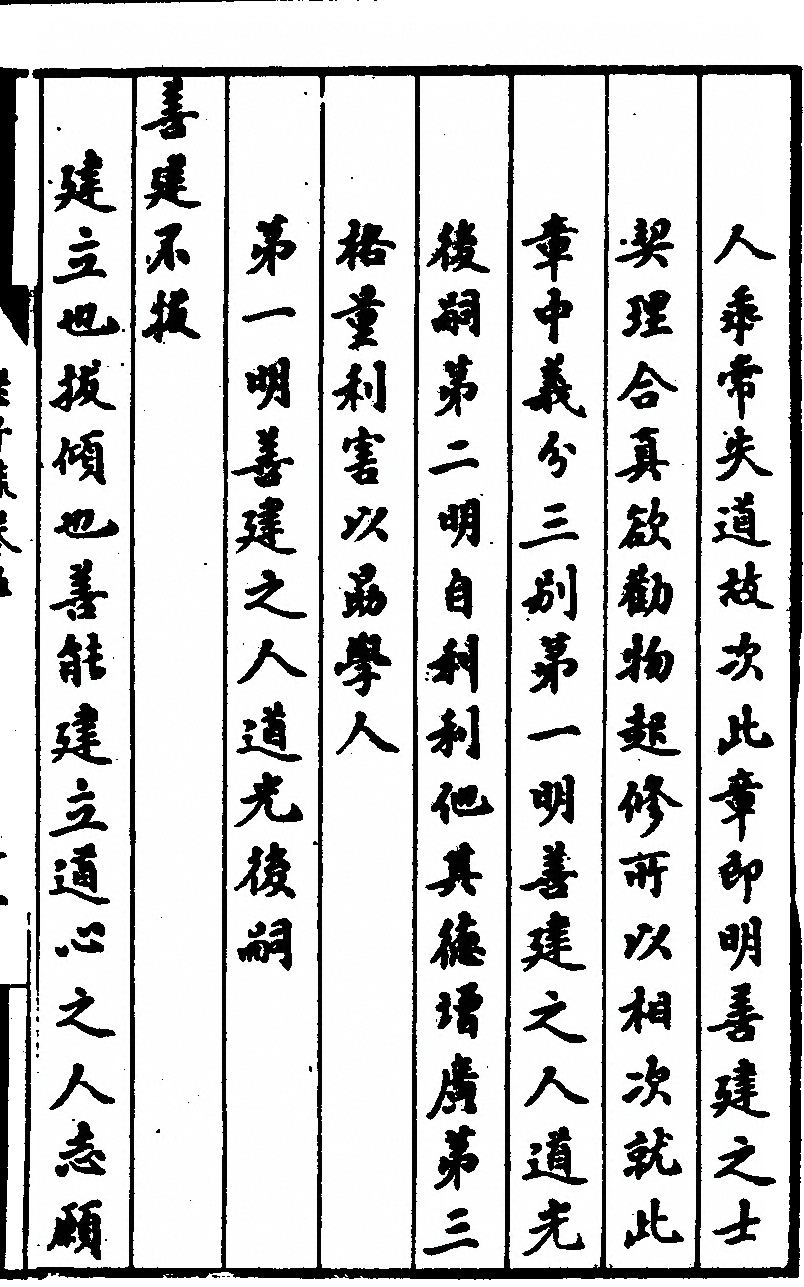 人乖常失道故次此章即明善建之士
契理合真欲勸物起修所以相次就此
章中義分三別第一明善建之人道光
後嗣第二明自利利他其德增廣第三
格量利害以勗學人
第一明善建之人道光後嗣
善建不拔
建立也拔傾也善能建立道心之人志願